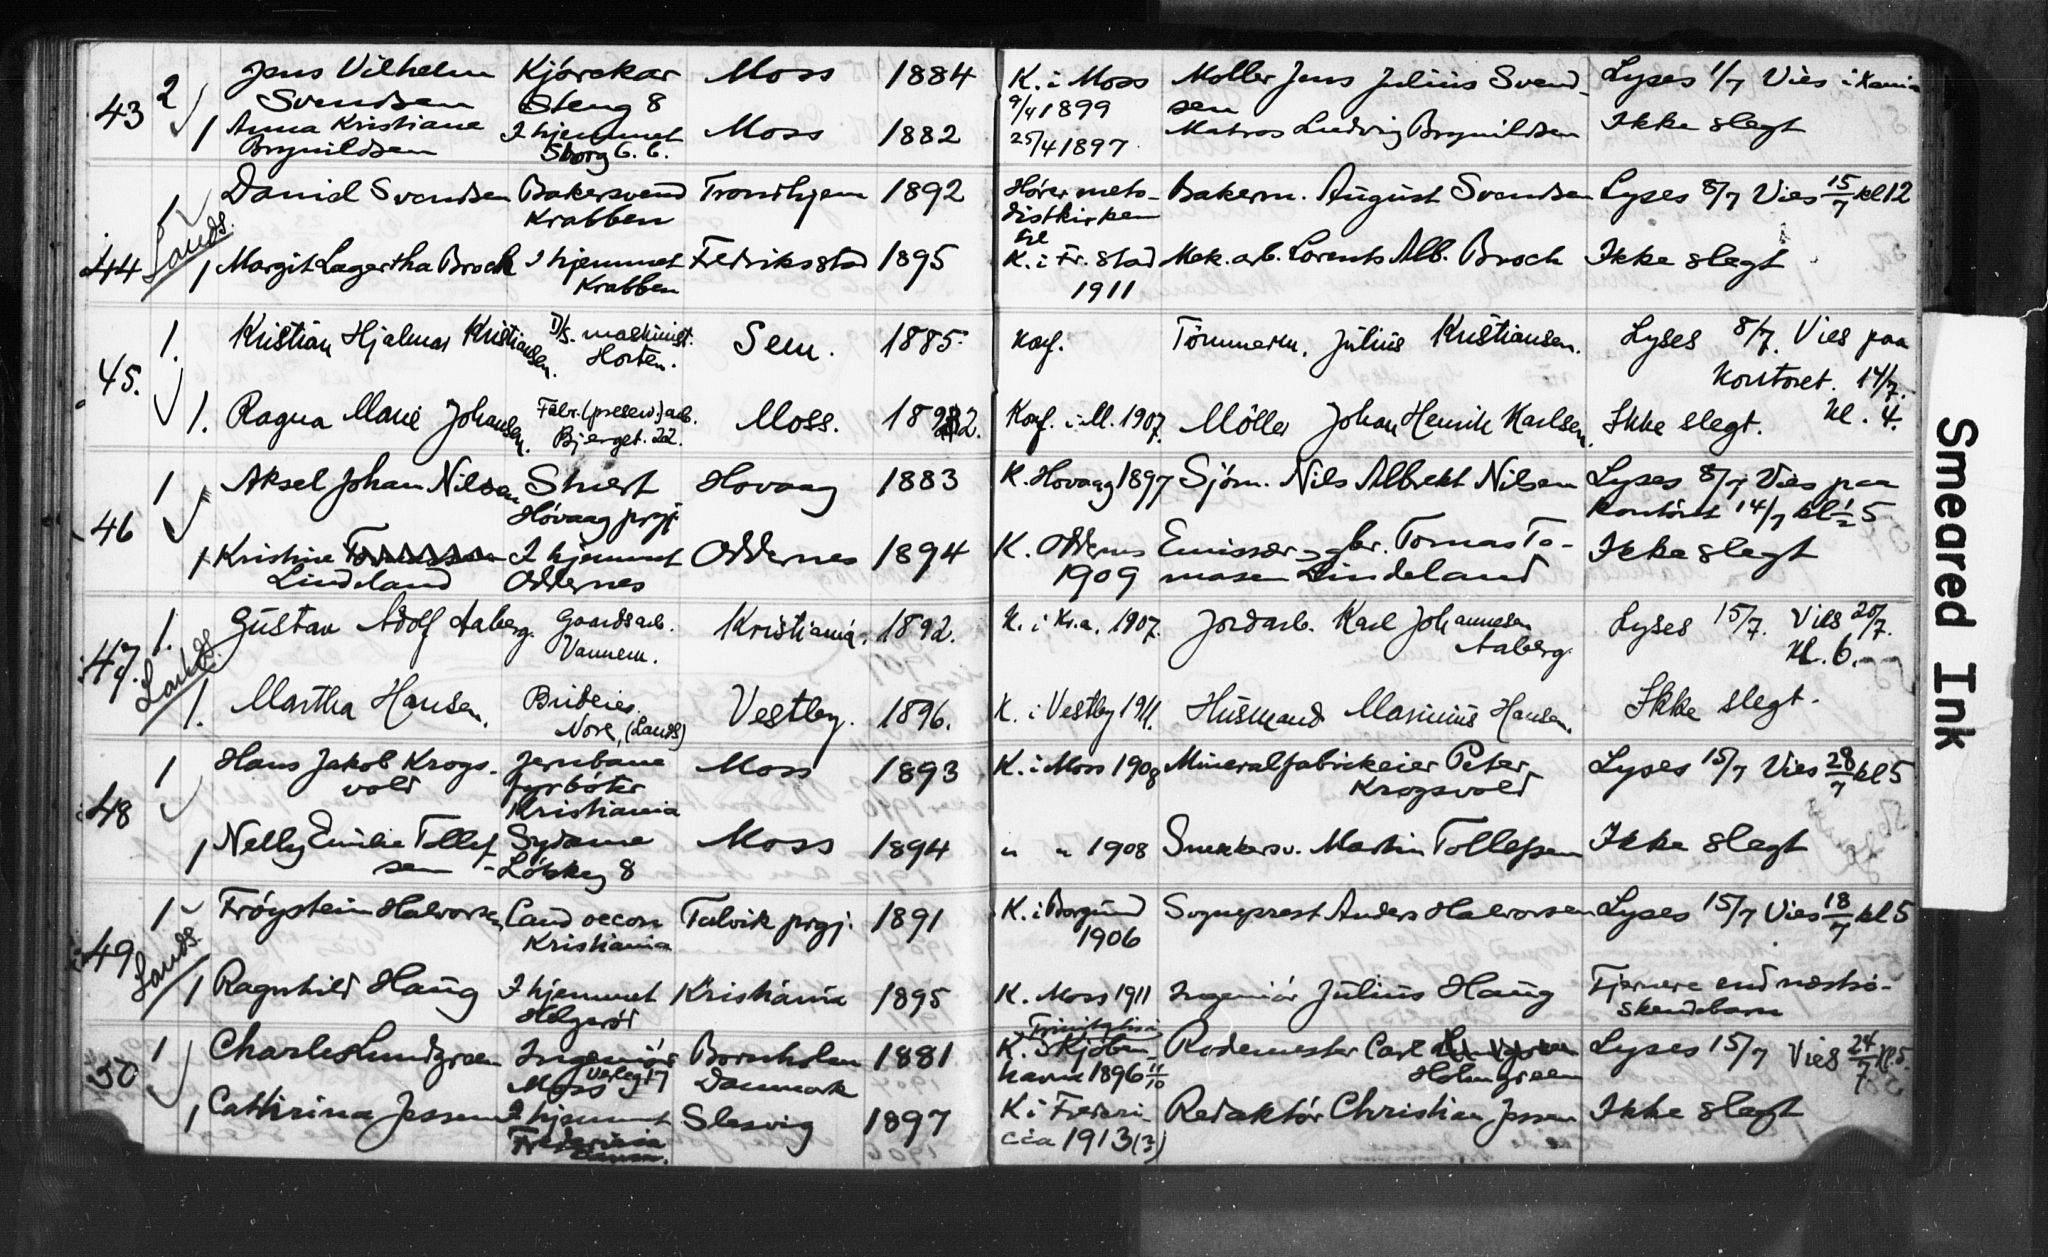 43 2 Jens Vilhelm Kjørekar Moss 1884 K. i Moss Møller Jens Julius Svend- Lyses 1/7 Vies i
Svendsen Steng 8 9/4 1899 sen
1 Anna Kristiane I hjemmet Moss 1882 25/4 1897 Matros Ludvig Brynildsen Ikke slegt
Brynildsen
1 Daniel Svendsen Bakersvend Trondhjem 1892 Hører meto- Bakerm. August Svendsen Lyses 8/7 Vies 15/7 kl 12
Krabben distkirken
til
44 Lands. 1 Margit Lagertha Broch I hjemmet Fredriksstad 1895 K. i Fr. stad Mek. arb. Lorents Alb. Broch Ikke slegt
Krabben 1911
45. 1. Kristian Hjalmar Kristiansen. D/s. maskinist. Sem. 1885. Konf. Tømmerm. Julius Kristiansen. Lyses 8/7. Vies paa
Horten. Kontoret. 14/7.
1. Ragna Marie Johansen. Fabr. (preserv.) arb. Moss. 1892. Konf. i M. 1907. Møller Johan Henrik Karlsen. Ikke slegt. Kl. 4.
Bjerget. 22.
46 1 Aksel Johan Nilsen Stuert Hovaag 1883 K. Hovaag 1897 Sjøm. Nils Albrekt Nilsen Lyses 8/7 Vies paa
Høvaag prgj. Kontoret 14/7 kl ½ 5
1 Kristine I hjemmet Oddernes 1894 K. Oddernes Emissær gbr. Tomas To-
Lindeland Oddernes 1909 masen Lindeland Ikke slegt
47. Lands. 1. Gustav Adolf Aaberg. Gaardsarb. Kristiania. 1892. K. i Kr.a. 1907. Jordarb. Karl Johannesen Lyses 15/7. Vies 20/7.
Vannem. Aaberg. Kl. 6.
1. Martha Hansen. Budeie. Vestby. 1896. K. i Vestby 1911. Husmand Marinius Hansen. Ikke slegt.
Nore, (Lands)
48 1 Hans Jakob Krogs- Jernbane Moss 1893 K. i Moss 1908 Mineralfabrikeier Peter Lyses 15/7 Vies 28/7 kl 5
vold fyrbøter Krogsvold
Kristiania
1 Nelly Emilie Tollef- Sydame Moss 1894 " " 1908 Snekkersv. Martin Tollefsen Ikke slegt
sen Løkkeg 8
49 Lands. 1 Frøystein Halvorsen Cand oecon Talvik prgj. 1891 K. i Borgund Sogneprest Anders Halvorsen Lyses 15/7 Vies 18/7 kl 5
Kristiania 1906
1 Ragnhild Haug I hjemmet Kristiania 1895 K. Moss 1911 Ingeniør Julius Haug Fjernere end næstsø-
Helgerød skendebarn
50 1 Charles Lundgreen Ingeniør Bornholm 1881 K. i Kjøben- Rodemester Carl Lyses 15/7 Vies 24/7 kl. 5.
Moss Verleg 17 Danmark havn 1896 11/10 Holmgreen
1 Cathrina Jessen I hjemmet Slesvig 1897 K i Frederi- Redaktør Christian Jessen Ikke slegt
Fredericia cia 1913 (?)
Smeared Ink